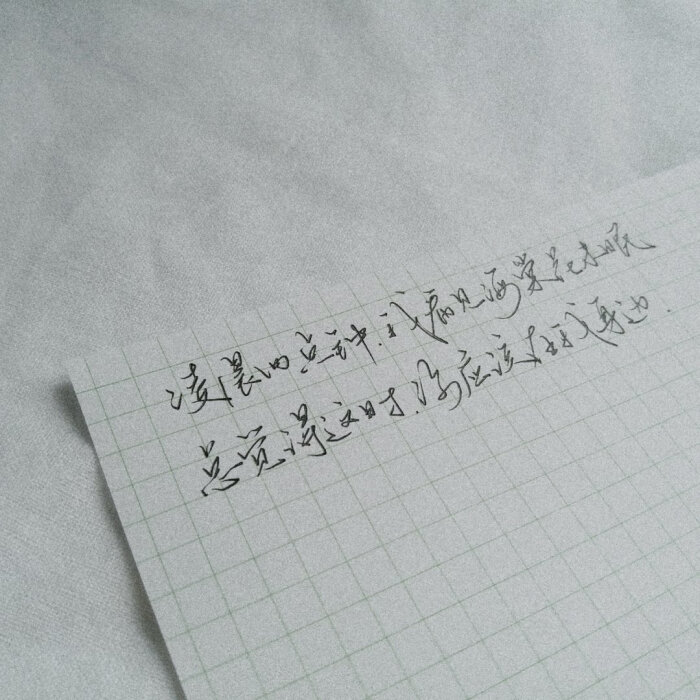 凌晨四点钟.我看见海棠花未眠
总觉得这时.你应该在我身边.